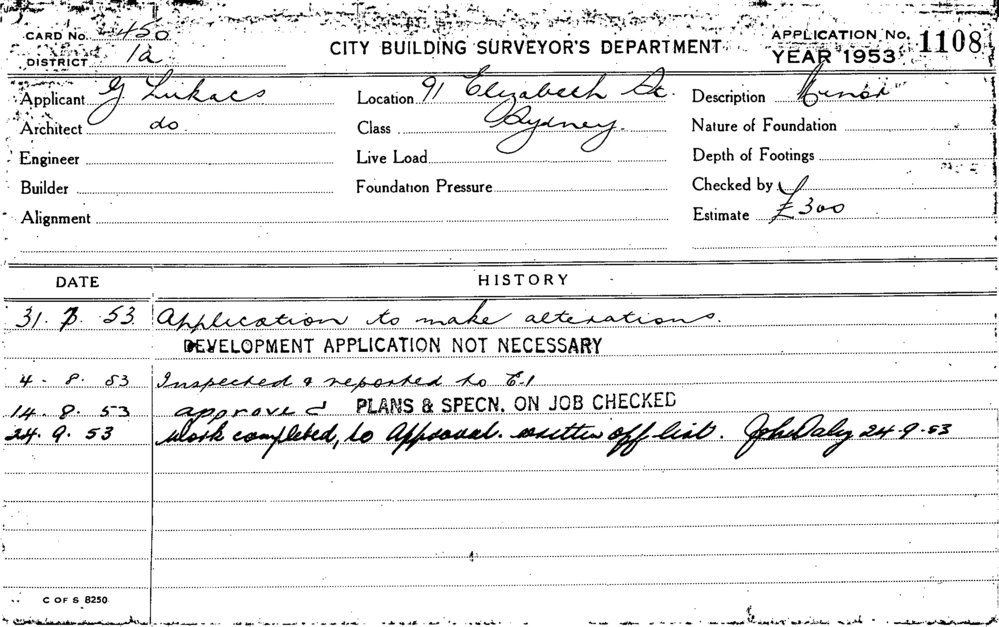 CARD No. 450
DISTRICT 1a
CITY BUILDING SURVEYOR'S DEPARTMENT
APPLICATION No. 1108
YEAR 1953
Applicant G Lukacs Location 91 Elizabeth St. Description Minor
Architect do Class Sydney. Nature of Foundation
Engineer Live Load Depth of Footings
Builder Foundation Pressure Checked by
Alignment Estimate £300
DATE HISTORY
31. 7. 53 Application to make alterations.
DEVELOPMENT APPLICATION NOT NECESSARY
4 - 8. 53 Inspected & reported to E.1
14. 8. 53 approved PLANS & SPECN. ON JOB CHECKED
24. 9. 53 Work completed, to Approval. written off list. John Daly 24-9-53
C OF S 8250